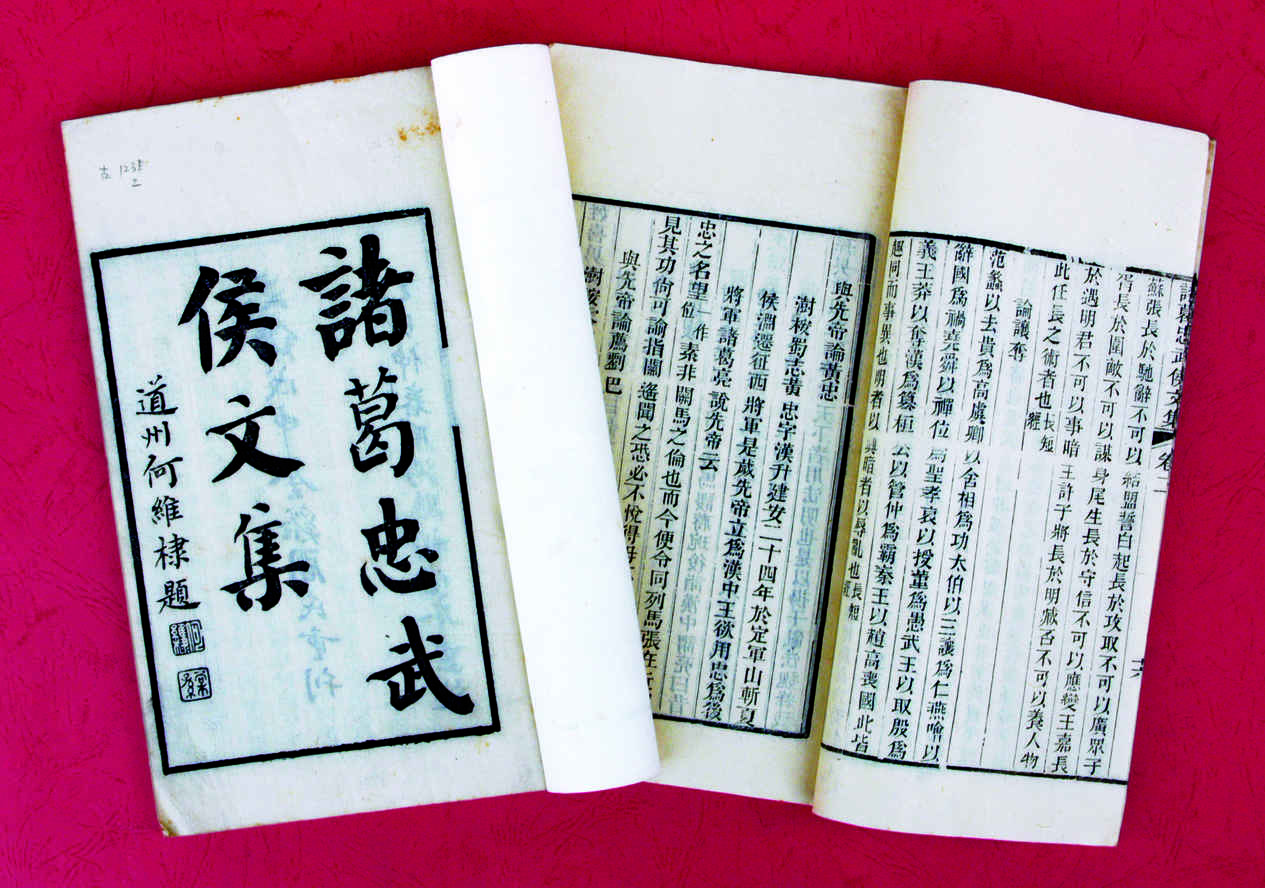 諸葛忠武
侯文集
道州何維棣題
諸葛忠武侯文集 卷二
蘇張長於馳辭不可以結盟誓白起長於攻取不可以廣眾子
胥長於圖敵不可以謀身尾生長於守信不可以應變王嘉長
於遇明君不可以事暗王許子將長於明臧否不可以養人物
此任長之術者也長短經
論讓奪
范蠡以去貴爲高虞卿以舍相爲功太伯以三讓爲仁燕噲以
辭國爲禍堯舜以禪位爲聖孝哀以授董爲愚武王以取殷爲
義王莽以奪漢爲篡桓公以管仲爲霸秦王以趙高喪國此皆
趣同而事異也明者以興暗者以辱亂也長短經
與先帝論黃忠
澍按蜀志黃忠字漢升建安二十四年於定軍山斬夏
侯淵遷征西將軍是歲先帝立爲漢中王欲用忠爲後
將軍諸葛亮說先帝云
忠之名望一作位素非關馬之倫也而今便令同列馬張在近
見其功尙可諭指關遙聞之恐必不悅得毋
與先帝論薦劉巴
澍按